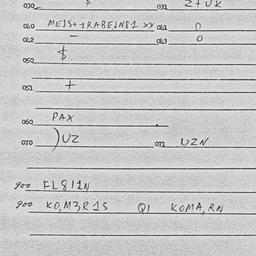 030 031 Z+UK
040 MEJS+1RABEJN81 XY 041 0
042 - 043 0
050 $
051 +
060 PAX
070 )UZ 071 UZN
900 FL811N
900 KO,M3R1S Q1 KOMA,RN